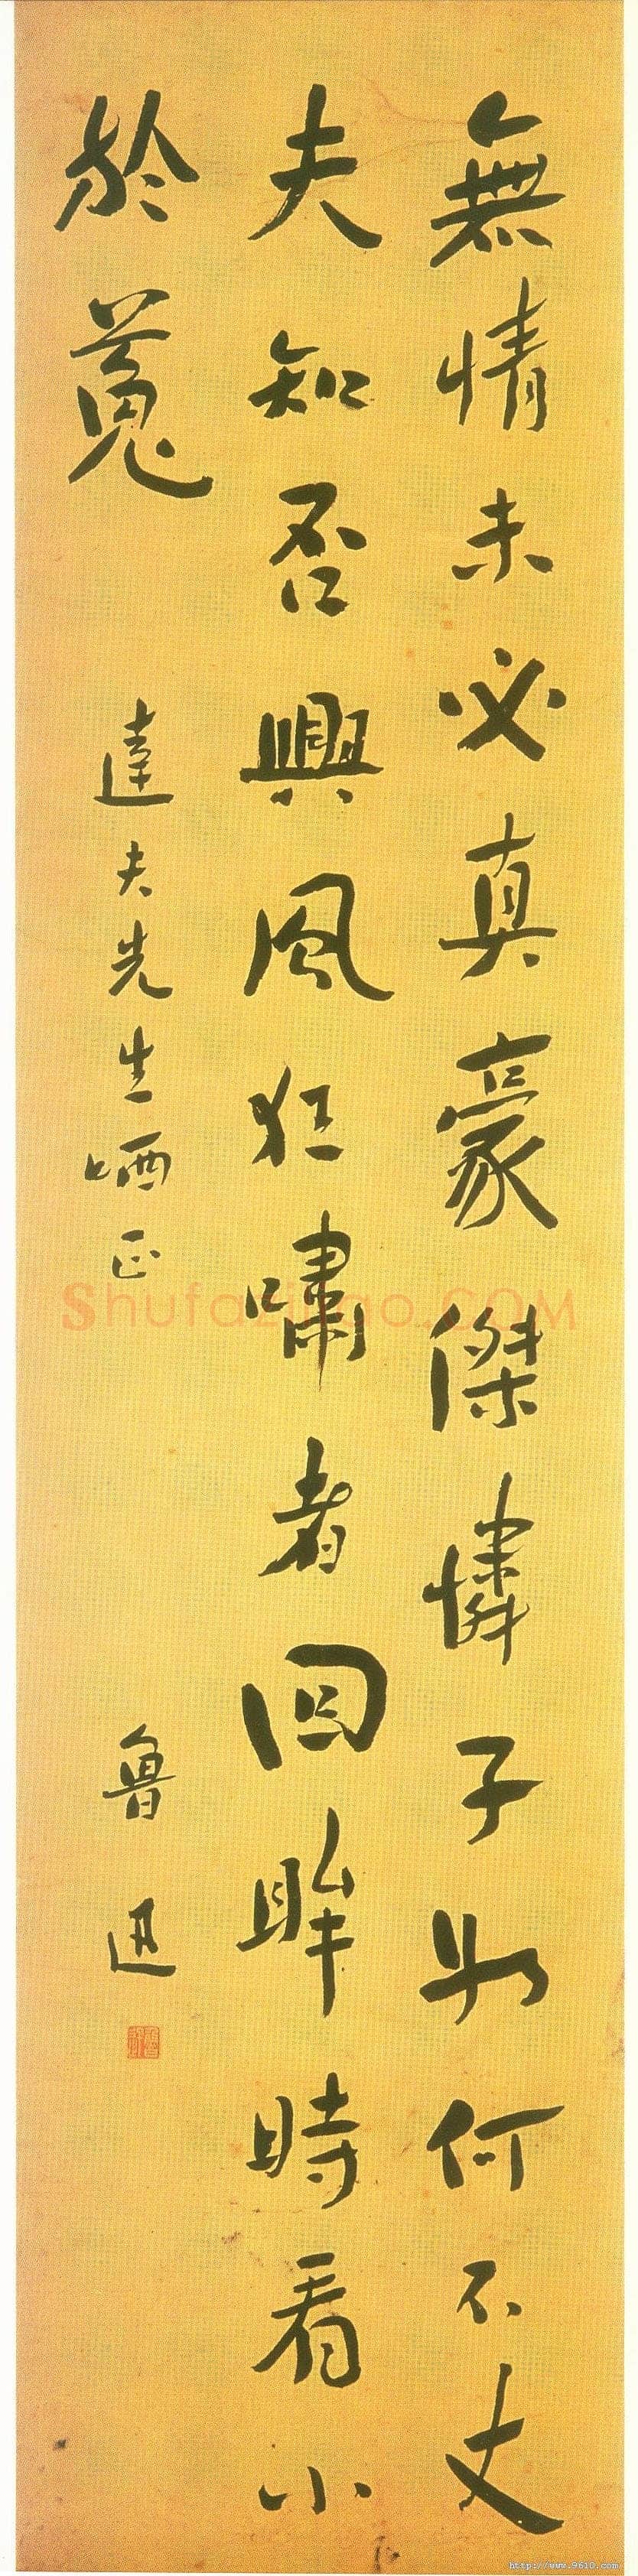 無情未必真豪傑憐子如何不丈
夫知否興風狂嘯者回眸時看小
於菟
達夫先生哂正
魯迅
Shufaziliao.COM
http://www.9610.com